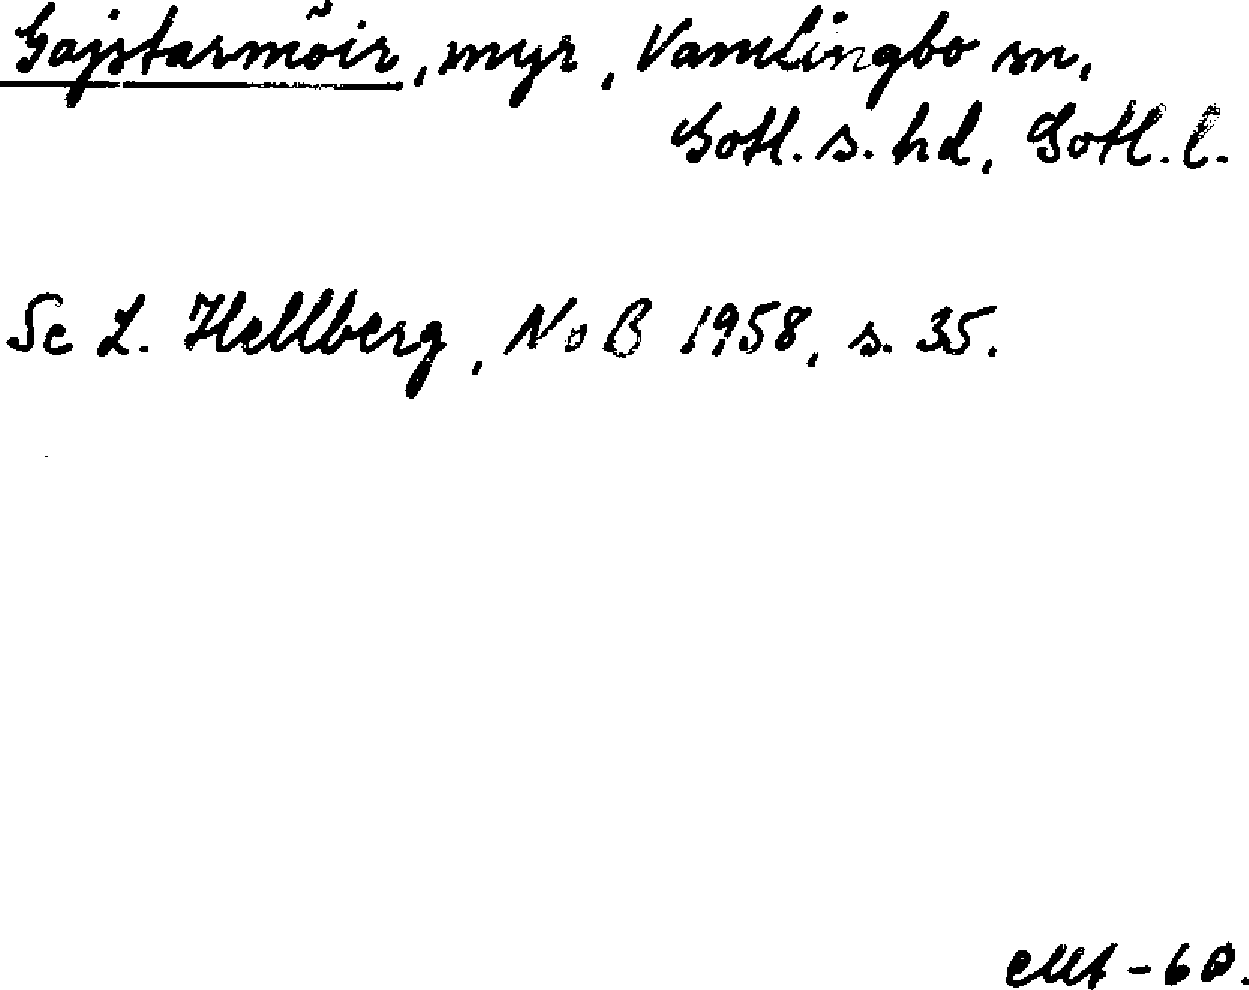 Gajstarmöir, myr, Vamlingbo sn,
Gotl. s. hd, Gotl. l.
Se L. Hellberg, NoB 1958, s. 35.
-60.